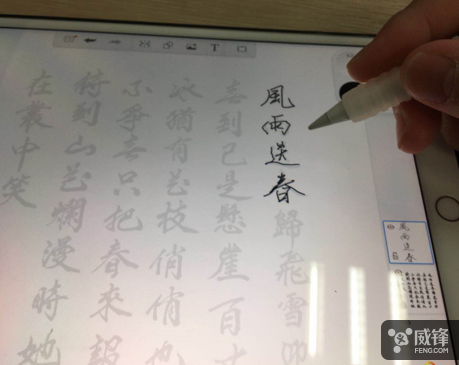 風雨送春歸飛雪迎
春到已是懸崖百丈
冰猶有花枝俏俏也
不爭春只把春來報
待到山花爛漫時她
在叢中笑
T
風雨
送春
威锋
FENG.COM